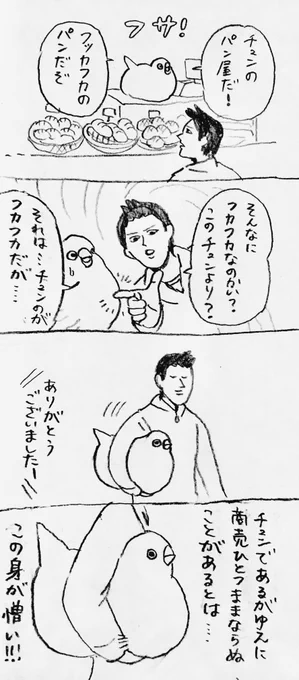 フサ！
チュンの
パン屋だ！
フッカフカの
パンだぞ
そんなに
フカフカなのかい？
このチュンより？
それは…チュンのが
フカフカだが…
ありがとう
ございましたー
チュンであるがゆえに
商売ひとつままならぬ
ことがあるとは…
この身が憎い!!!